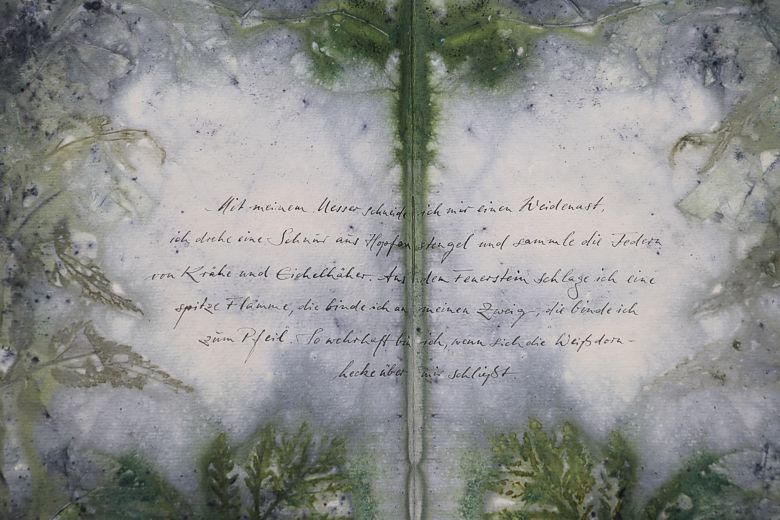 Mit meinem Messer schneide ich mir einen Weidenast,
ich drehe eine Schnur aus Hopfenstengel und sammle die Federn
von Krähe und Eichelhäher. Aus dem Feuerstein schlage ich eine
spitze Flamme, die binde ich an meinen Zweig, die binde ich
zum Pfeil. So wehrhaft bin ich, wenn sich die Weißdorn-
hecke über mir schließt.